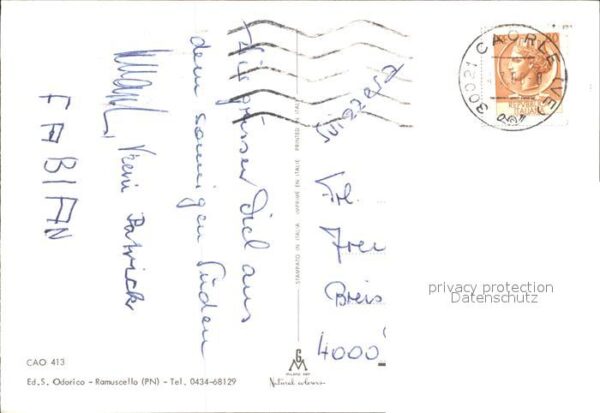 Wir grüssen Dich aus
dem sonnigen Süden
Vreni Patrick
FABIAN
CAO 413
Ed.S. Odorico - Ramuscello (PN) - Tel. 0434-68129
STAMPATO IN ITALIA IMPRIMÉ EN ITALIE PRINTED IN ITALY
GM
Natural colours
30021 CAORLE (VE)
REPUBBLICA
ITALIANA
Frl.
Frei
Breis
4000
privacy protection
Datenschutz